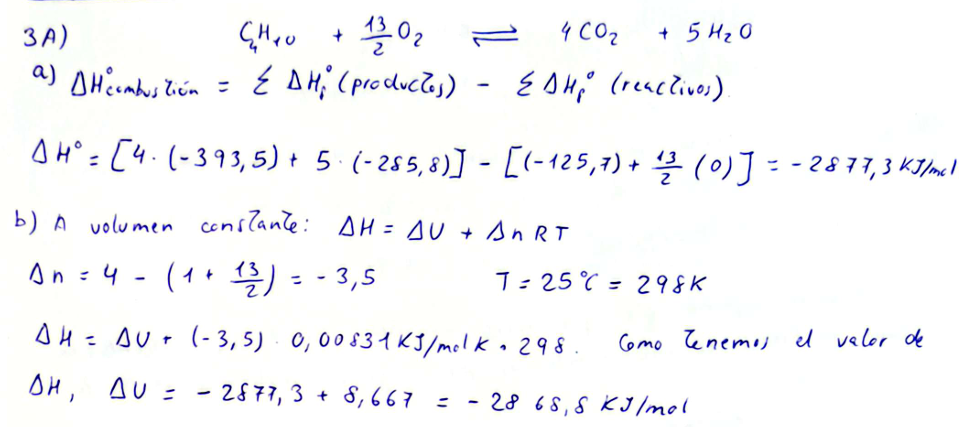 3A) C₄H₁₀ + 13/2 O₂ ⇌ 4 CO₂ + 5 H₂O
a) ΔH°combustión = Σ ΔHf° (productos) - Σ ΔHf° (reactivos)
ΔH° = [4 · (-393,5) + 5 · (-285,8)] - [(-125,7) + 13/2 (0)] = -2877,3 KJ/mol
b) A volumen constante: ΔH = ΔU + Δn RT
Δn = 4 - (1 + 13/2) = -3,5 T = 25°C = 298K
ΔH = ΔU + (-3,5) · 0,00831 KJ/mol K · 298. Como tenemos el valor de
ΔH, ΔU = -2877,3 + 8,667 = -2868,8 KJ/mol